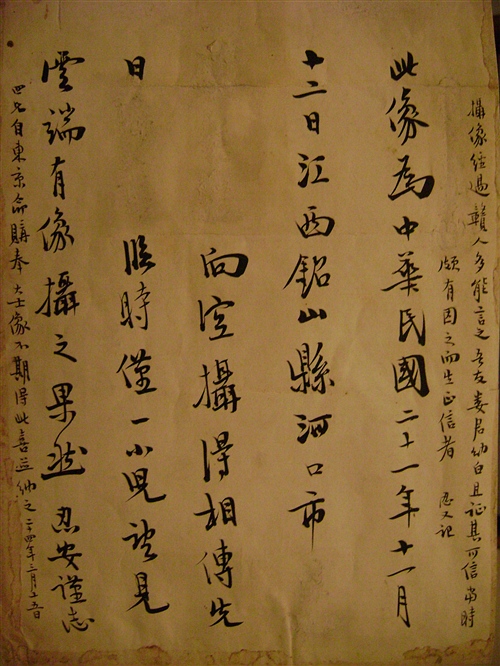 攝像經過贛人多能言之吾友婁居納白且証其可信當時
頗有因之而生正信者 忍又記
此像為中華民國二十一年十一月
十二日江西鉛山縣河口市
向空攝得相傳先
日 臨時僅一小兒望見
雲端有像攝之果然 忍安謹志
自東京命購奉大士像不期得此喜並納之 二十四年三月十五日